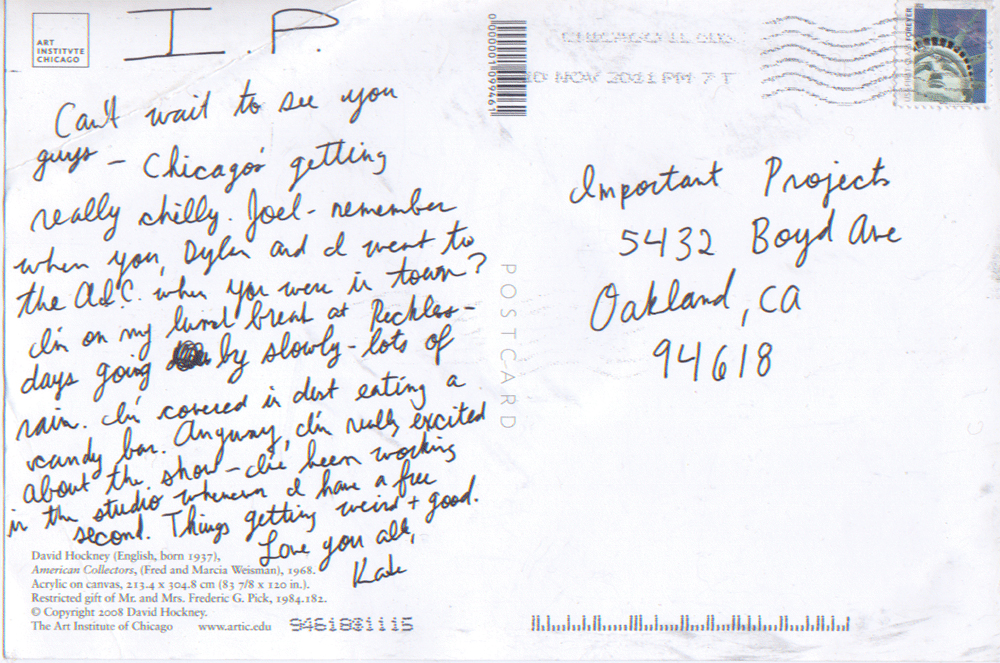 ART
INSTITVTE
CHICAGO
I.P.
Can't wait to see you
guys – Chicago's getting
really chilly. Joel – remember
when you, Dylan and I went to
the A.I.C. when you were in town?
I'm on my lunch break at Reckless –
days going by slowly – lots of
rain. I'm covered in dust eating a
candy bar. Anyway, I'm really excited
about the show – I've been working
in the studio whenever I have a free
second. Things getting weird + good.
Love you all,
Kate
David Hockney (English, born 1937),
American Collectors, (Fred and Marcia Weisman), 1968.
Acrylic on canvas, 213.4 x 304.8 cm (83 7/8 x 120 in.).
Restricted gift of Mr. and Mrs. Frederic G. Pick, 1984.182.
© Copyright 2008 David Hockney.
The Art Institute of Chicago www.artic.edu
POSTCARD
CHICAGO IL
10 NOV 2011 PM 7 T
FOREVER
Important Projects
5432 Boyd Ave
Oakland, CA
94618